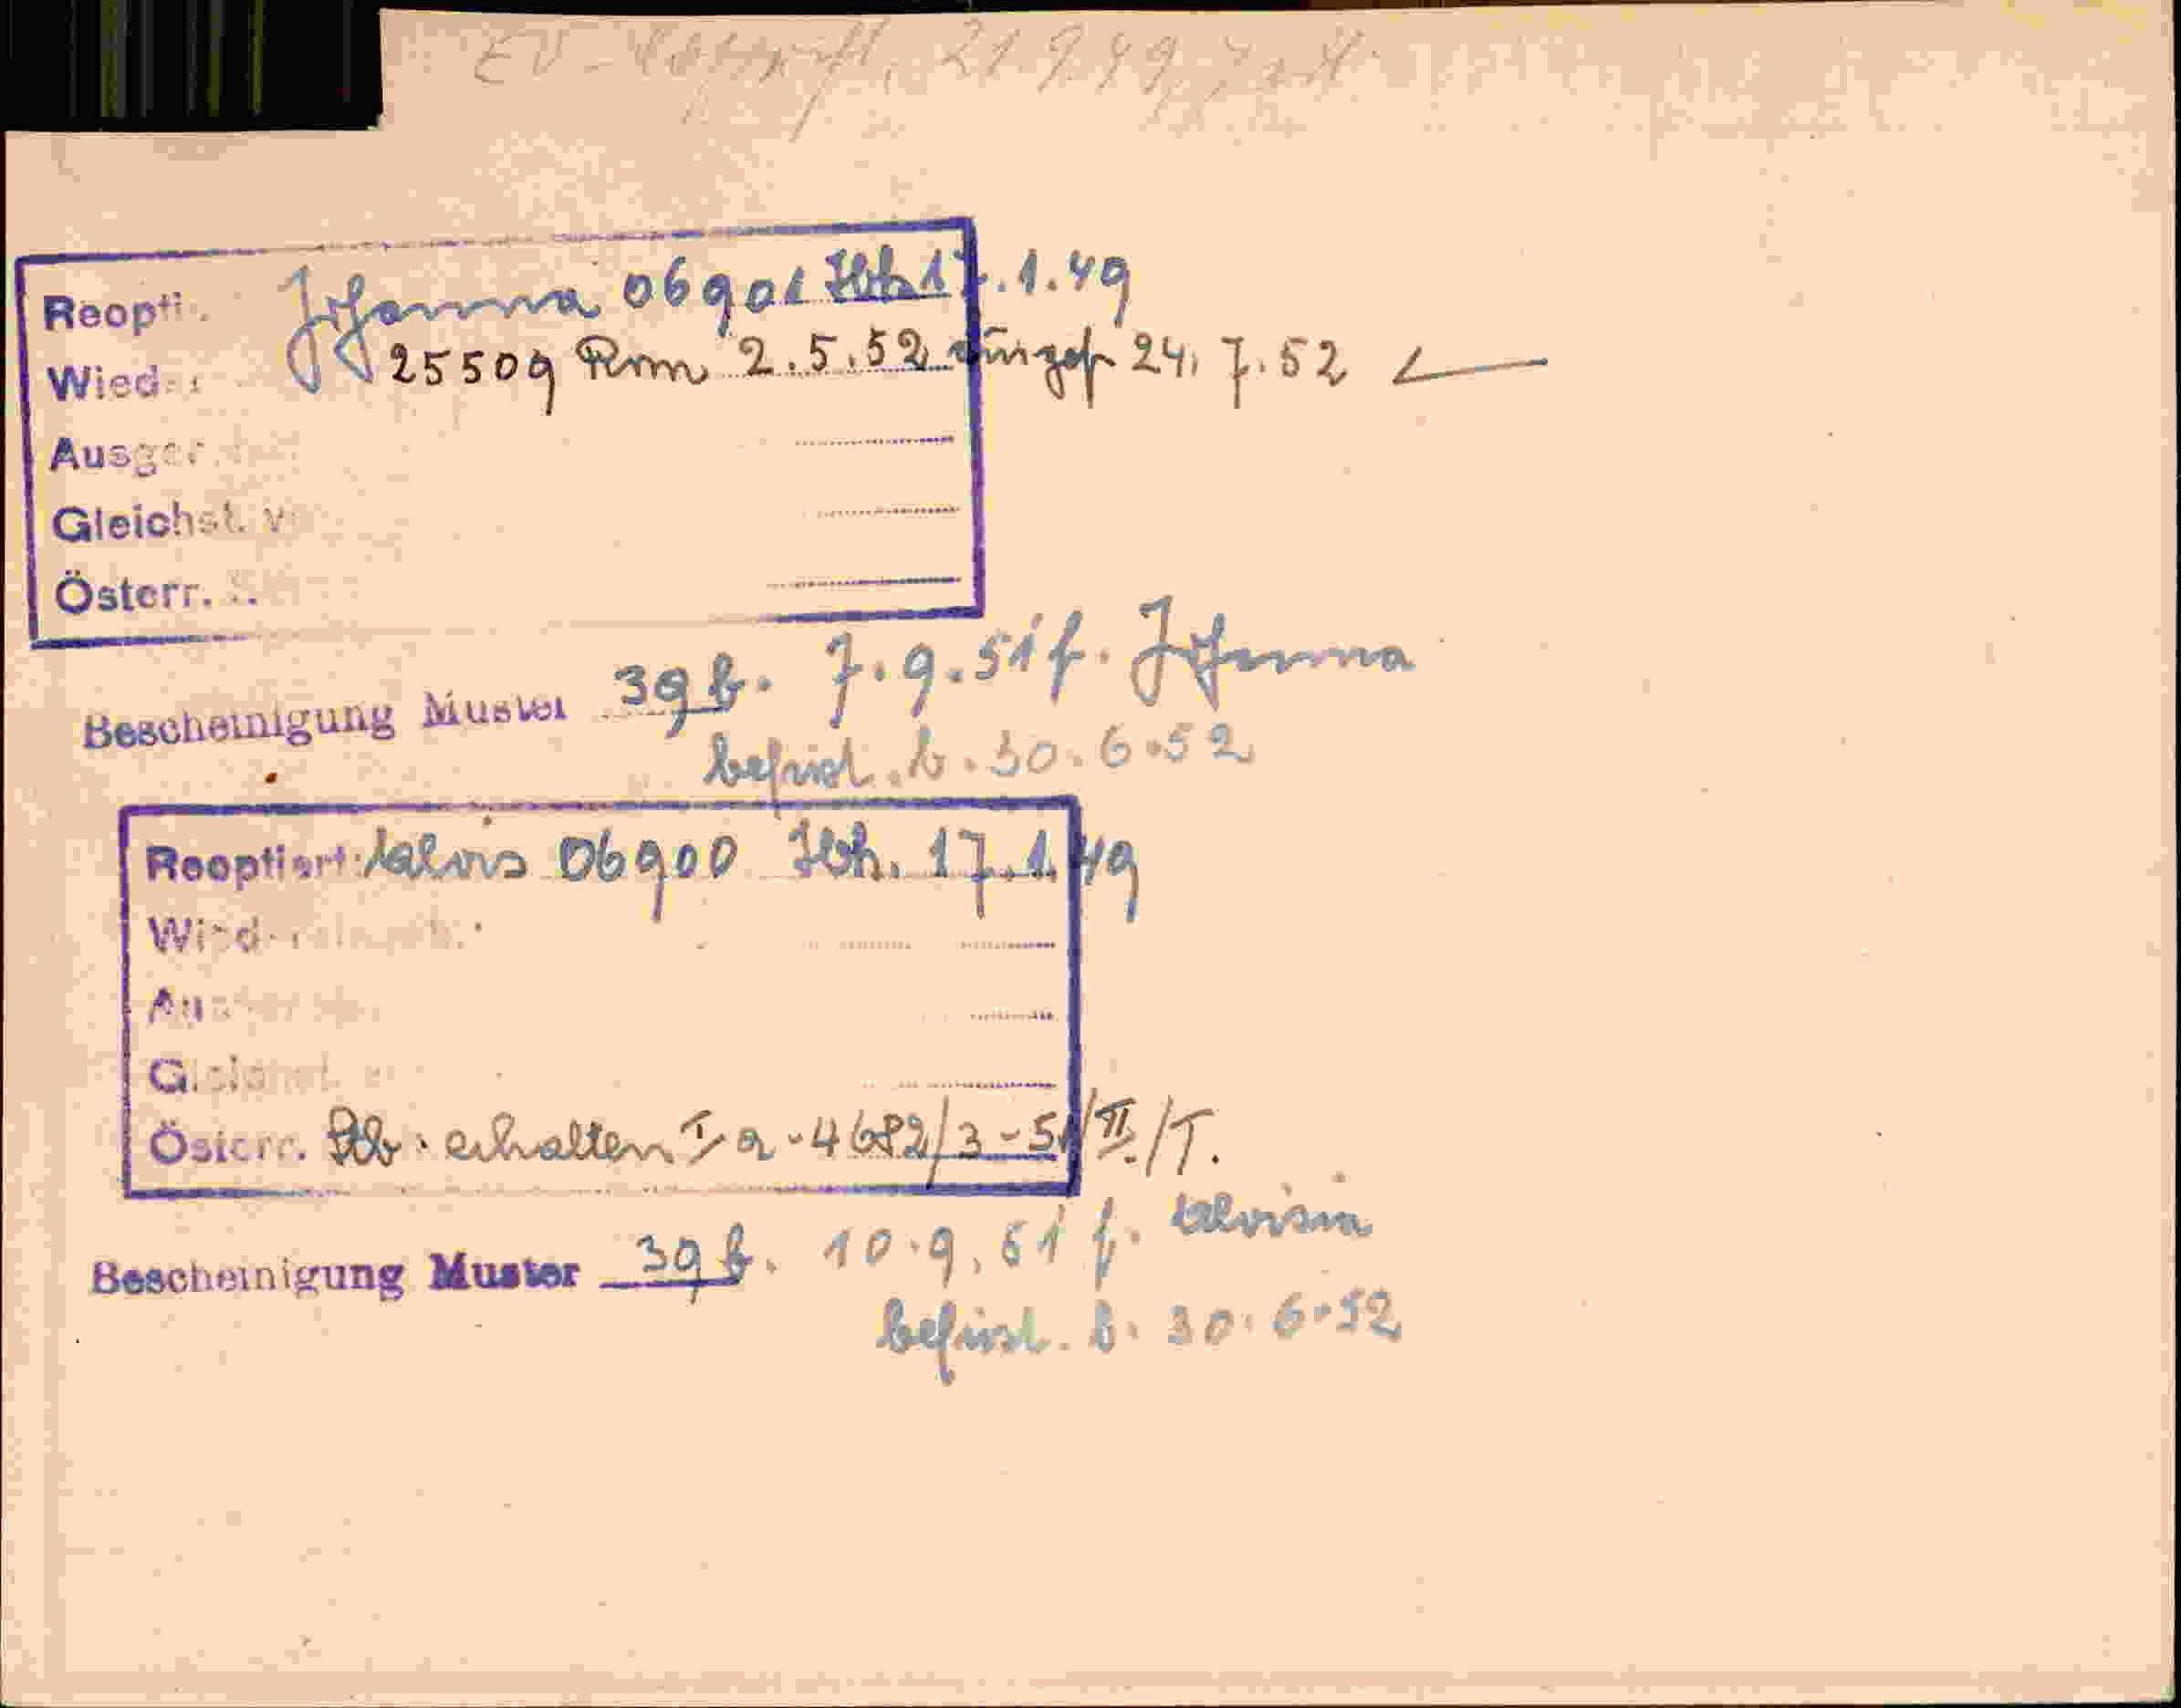 EV- 21.9.49
Reopti. Johanna 06901 Ibk. 17.1.49
Wied. 25509 Rom 2.5.52 eingel. 24.7.52
Ausger
Gleichst. v
Österr.
Bescheinigung Muster 39 b. 7.9.51 f. Johanna
befrist. b. 30.6.52
Reoptiert: Alois 06900 Ibk. 17.1.49
Wied
Au
Gleichst.
Österr. Stb. erhalten Ia-4682/3-51/II/T.
Bescheinigung Muster 39 b. 10.9.51 f. Aloisia
befrist. b. 30.6.52